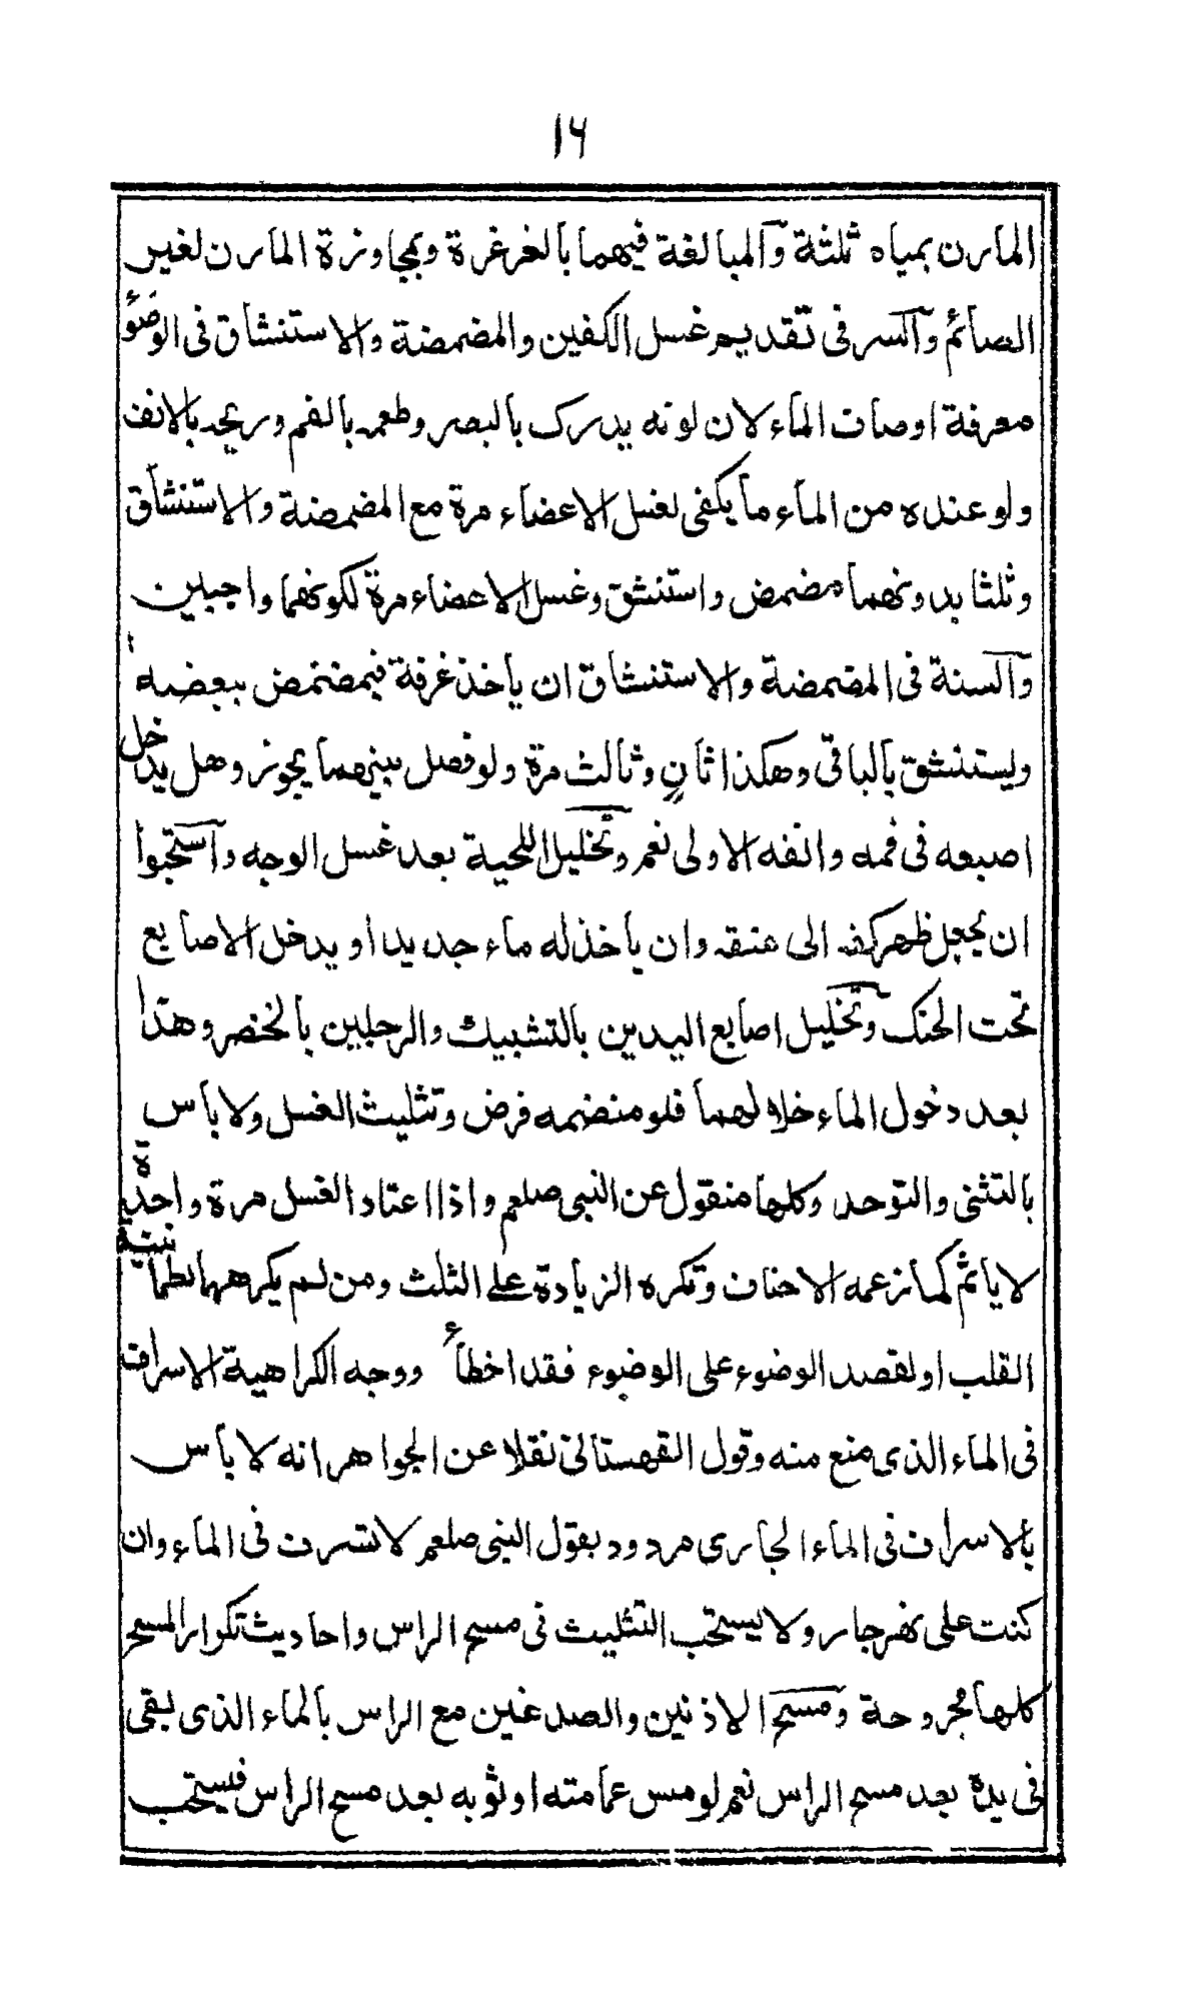 ۱۶
المارن بمياه ثلثة والمبالغة فيهما بالغرغرة وبمجاوزة المارن لغير
الصائم والسر فى تقديم غسل الكفين والمضمضة والاستنشاق فى الوضوُ
معرفة اوصاف الماء لان لونه يدرك بالبصر وطعمه بالفم وريحه بالانف
ولو عنده من الماء ما يكفى لغسل الاعضاء مرة مع المضمضة والاستنشاق
وثلثا بدونهما مضمض واستنشق وغسل الاعضاء مرة لكونهما واجبين
والسنة فى المضمضة والاستنشاق ان يأخذ غرفة فيمضمض ببعضها
ويستنشق بالباقى وهكذا ثانٍ وثالث مرة ولو فصل بينهما يجوز وهل يدخل
اصبعه فى فمه وانفه الاولى نعم وتخليل اللحية بعد غسل الوجه واستحبوا
ان يجعل ظهر كفه الى عنقه وان يأخذ له ماء جديدا او يدخل الاصابع
تحت الحنك وتخليل اصابع اليدين بالتشبيك والرجلين بالخنصر وهذا
بعد دخول الماء خلالهما فلو منضمه فرض وتثليث الغسل ولا بأس
بالتثنى والتوحد وكلها منقول عن النبى صلعم واذا اعتاد الغسل مرة واحدة
لا يأثم كما زعمه الاحناف وتكره الزيادة على الثلث ومن لم يكرهها لطمانينة
القلب او لقصد الوضوء على الوضوء فقد اخطأ ووجه الكراهية الاسراف
فى الماء الذى منع منه وقول القهستانى نقلا عن الجواهر انه لا بأس
بالاسراف فى الماء الجارى مردود بقول النبى صلعم لا تسرف فى الماء وان
كنت على نهر جار ولا يستحب التثليث فى مسح الراس واحاديث تكرار المسح
كلها مجروحة ومسح الاذنين والصدغين مع الراس بالماء الذى بقى
فى يده بعد مسح الراس نعم لو مس عمامته او ثوبه بعد مسح الراس فيستحب